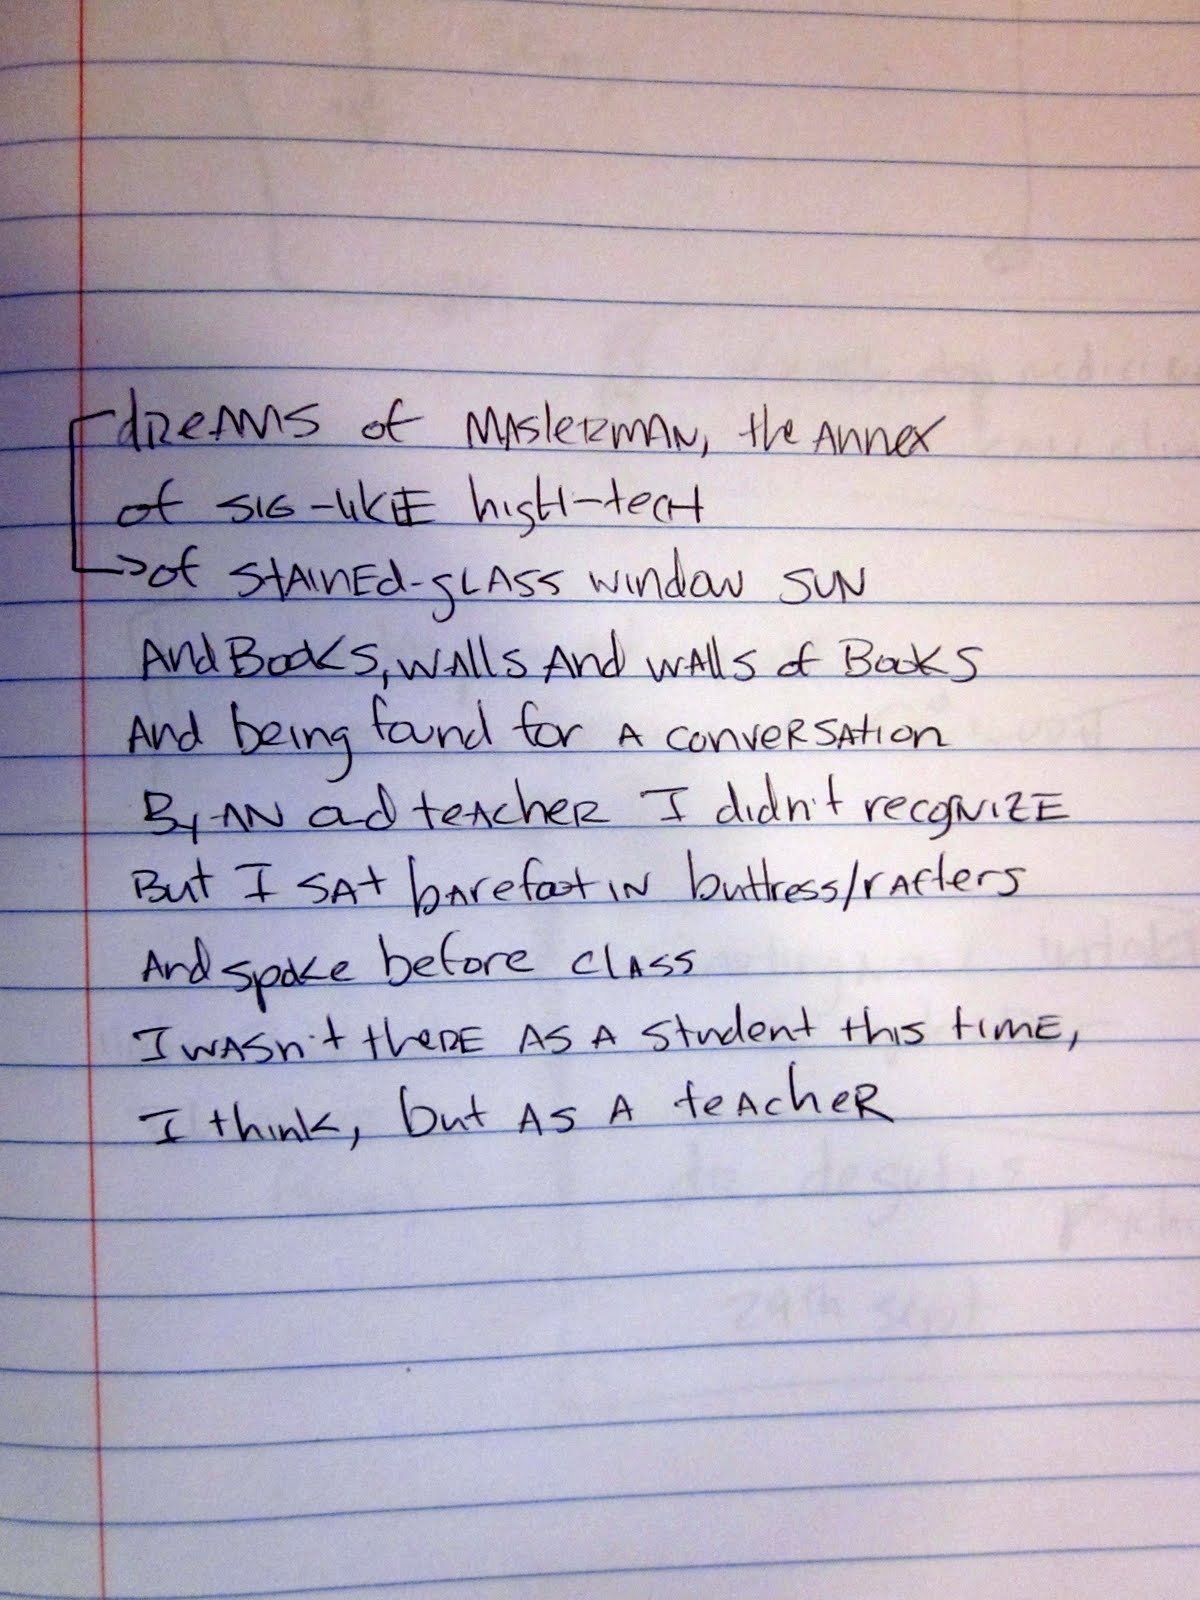 dreams of Masterman, the annex
of SIG-like high-tech
→of stained-glass window sun
And Books, walls and walls of Books
And being found for a conversation
By an old teacher I didn't recognize
But I sat barefoot in buttress/rafters
And spoke before class
I wasn't there as a student this time,
I think, but as a teacher
29th sept